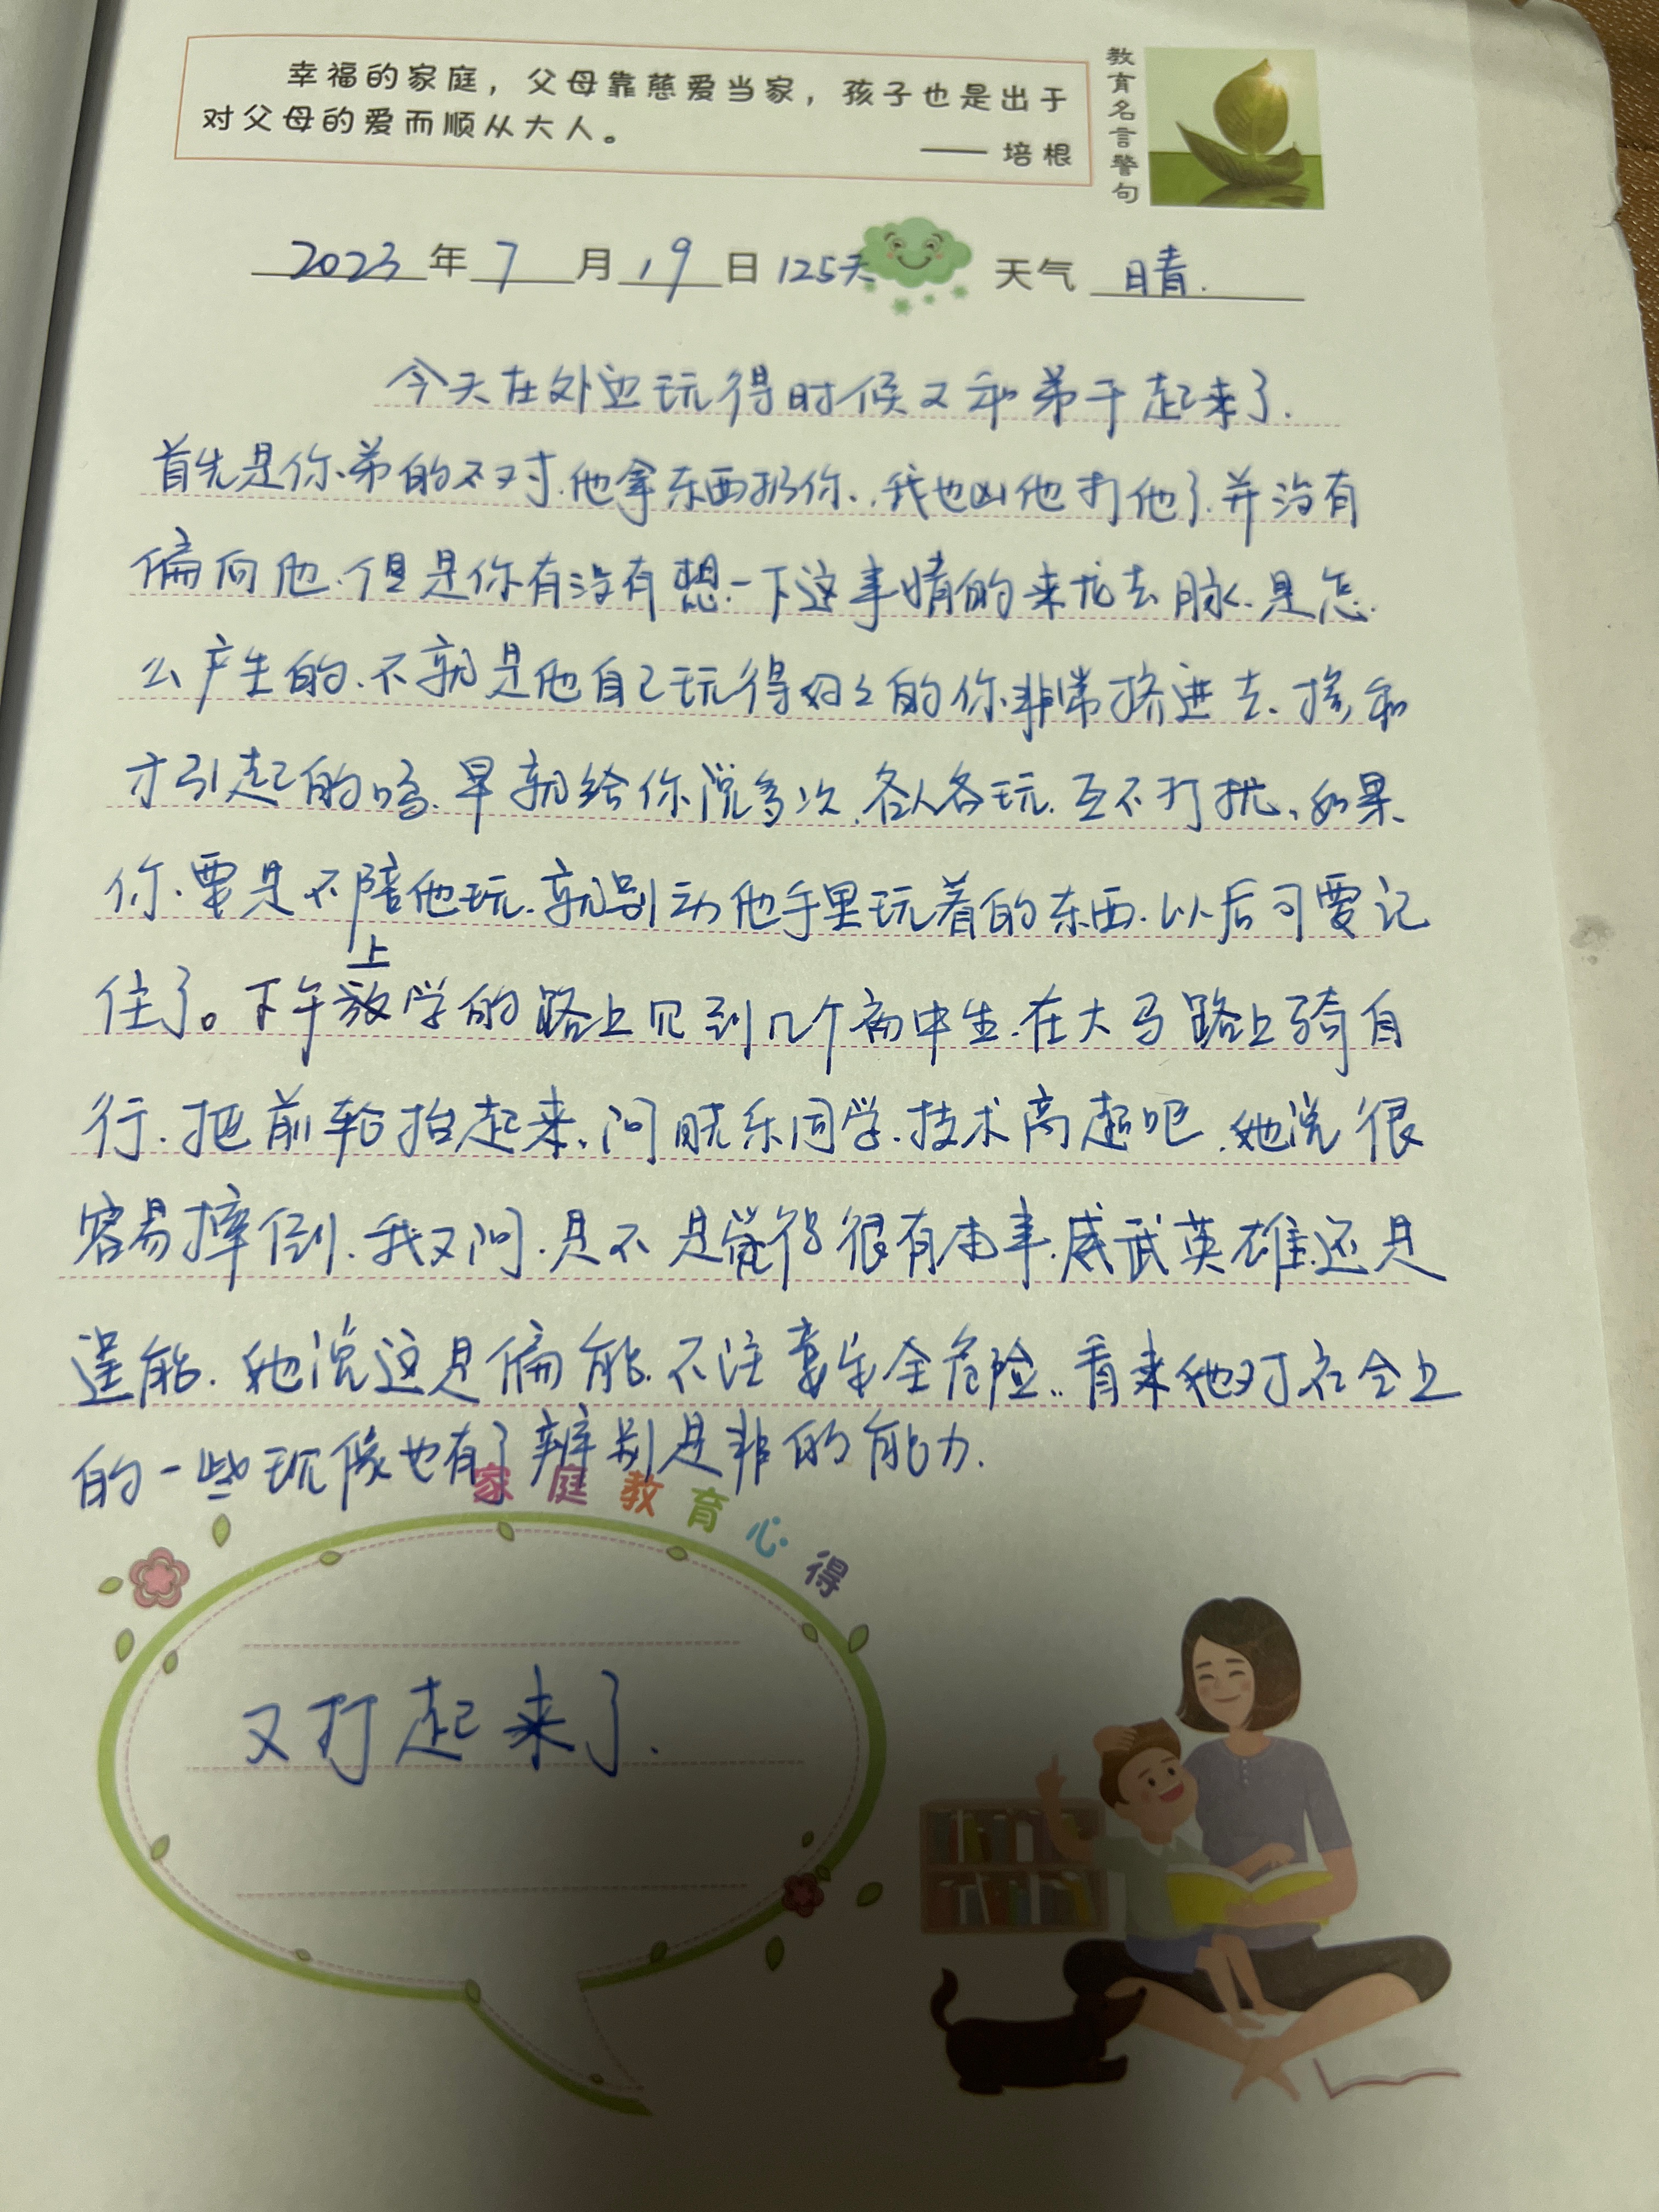 幸福的家庭，父母靠慈爱当家，孩子也是出于
对父母的爱而顺从大人。
—— 培根
教育名言警句
2023年7月19日 125天 天气 晴.
今天在外边玩得时候又和弟干起来了.
首先是你弟的不对.他拿东西扔你.,我也凶他打他了.并没有
偏向他.但是你有没有想一下这事情的来龙去脉.是怎
么产生的.不就是他自己玩得好好的你非常挤进去.掺和
才引起的吗.早就给你说多次.各人各玩.互不打扰,如果
你.要是不陪他玩.就别动他手里玩着的东西.以后可要记
住了。下午放学的路上见到几个初中生.在大马路上骑自
上
行.把前轮抬起来,问 乐同学.技术高超吧.她说很
容易摔倒.我又问.是不是觉得很有本事.威武英雄.还是
逞能.她说这是偏能.不注意安全危险..看来她对社会上
的一些现像也有了辨别是非的能力.
家庭教育心得
又打起来了.